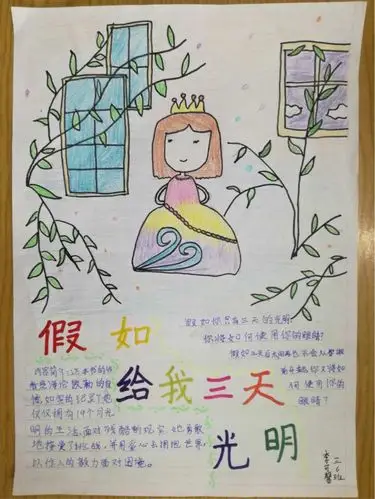 假如
给我三天
光明
假如你只有三天的光明
你将如何使用你的眼睛?
假如三天后太阳再也不会从
你又将如
何使用你的
眼睛?
内容简介:这本书的作
者是海伦凯勒的自
传,如实的记录了她
仅仅拥有19个月光
明的生活,面对残酷的现实,她勇敢
地接受了挑战,并用爱心去拥抱世界,
以惊人的毅力面对困境。
二6班